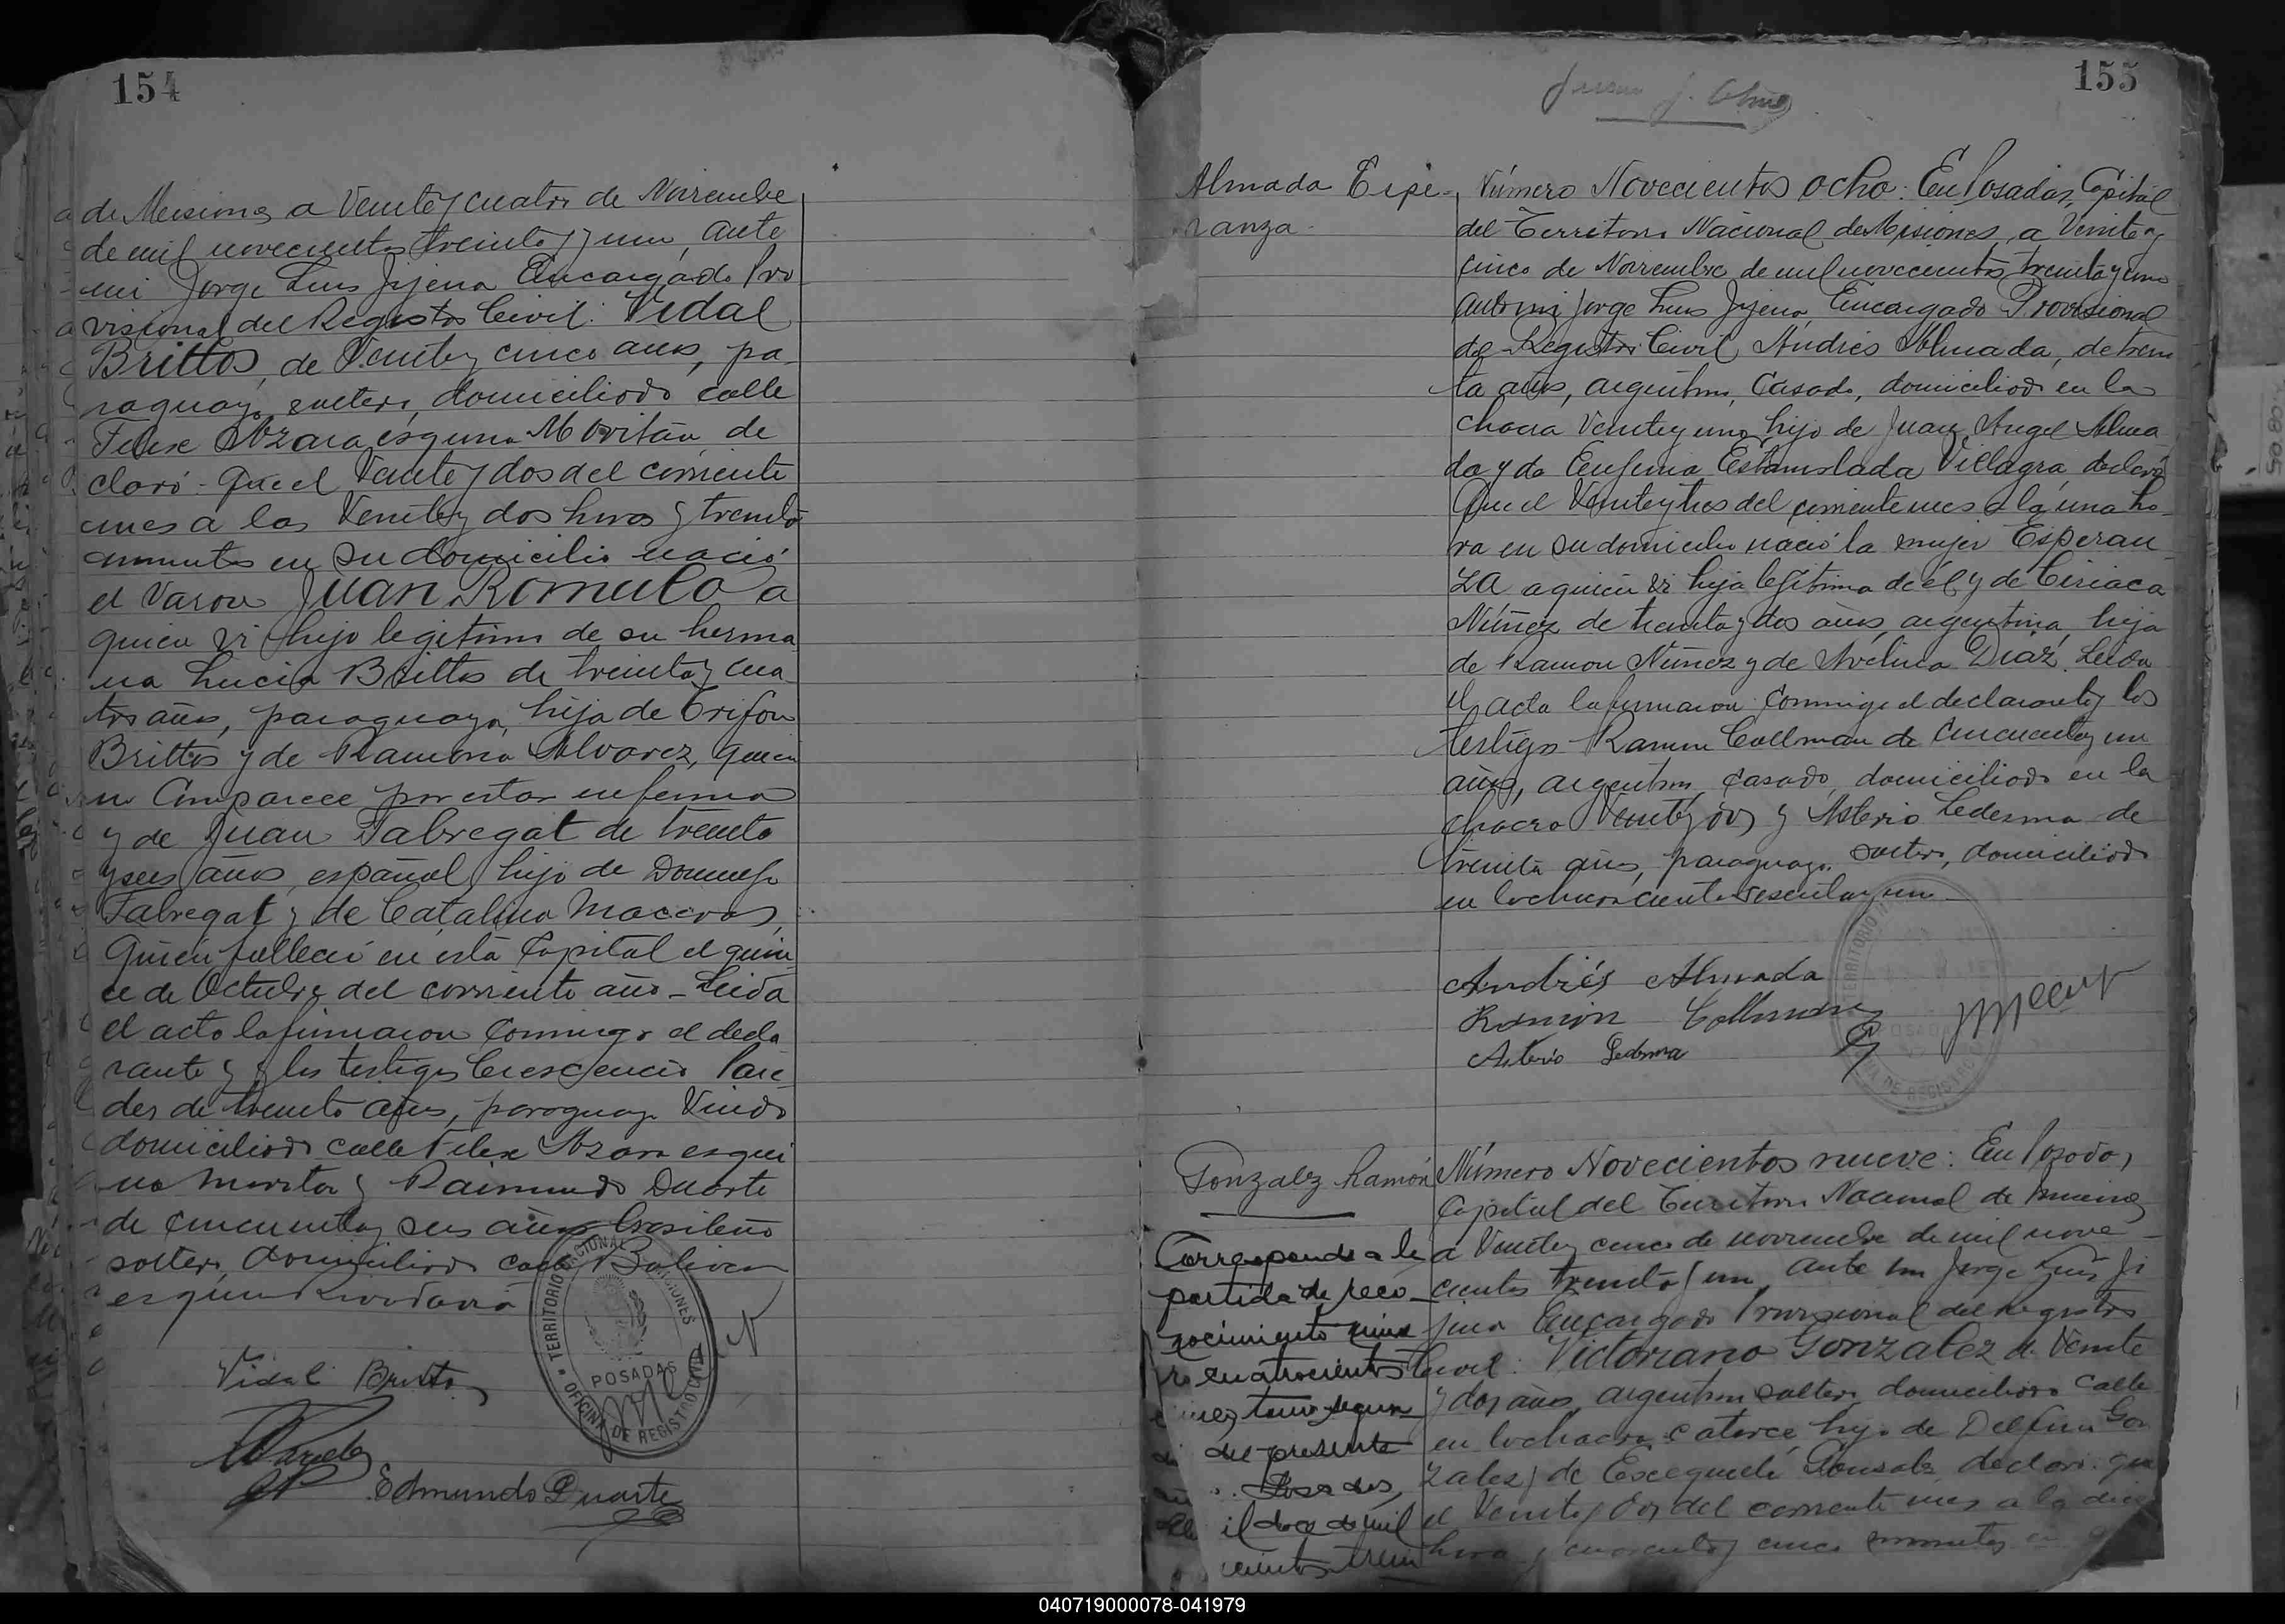 154
de Misiones a Veinte y cuatro de Noviembre
de mil novecientos treinta y uno, ante
mi Jorge Luis Jijena Encargado Pro
visional del Registro Civil: Vidal
Brittos, de Veinte y cinco años, pa-
raguayo, soltero, domiciliado calle
Felix Azara esquina Moritán, de
claró: Que el Veinte y dos del corriente
mes a las Veinte y dos horas y treinta
minutos en su domicilio nació
el Varon Juan Romulo a
quien vi hijo legitimo de su herma
na Lucia Brittos de treinta y cua
tro años, paraguaya, hija de Trifon
Brittos y de Ramona Alvarez, quien
no Comparece por estar enferma
y de Juan Fabregat de treinta
y seis años, español, hijo de Domingo
Fabregat y de Catalina
Quien falleció en esta Capital el quin
ce de Octubre del corriente año - Leida
el acta la firmaron Conmigo el decla
rante y los testigos Crescencio Pare
des de treinta años, paraguayo Viudo
domiciliado calle Felix Azara esqui
na Moritan y Raimundo Duarte
de cincuenta y seis años brasileño
soltero, domiciliado calle Bolivia
esquina Rivadavia
Vidal Britto
Paredes
Edmundo Duarte
TERRITORIO NACIONAL MISIONES
POSADAS
OFICINA DE REGISTRO CIVIL
155
Juan J.
Almada Espe-
ranza.
Número Novecientos ocho: En Posadas, Capital
del Territorio Nacional de Misiones, a Veinte y
cinco de Noviembre de mil novecientos treinta y uno
ante mi Jorge Luis Jijena, Encargado Provisional
de Registro Civil, Andrés Almada, de trein
ta años, argentino, Casado, domiciliado en la
chacra Veinte y uno, hijo de Juan Angel Alma
da y de Eufemia Estanislada Villagra, declaró
Que el Veinte y tres del corriente mes a la una ho
ra en su domicilio nació la mujer Esperan
za a quien vi hija legitima de él y de Ciriaca
Núñez de treinta y dos años, argentina, hija
de Ramon Núñez y de Avelina Diaz. Leida
el acta la firmaron conmigo el declarante y los
testigos Ramon Collman de Cincuenta y un
años, argentino, casado, domiciliado en la
chacra Veinte y dos y Asterio Ledesma de
treinta años, paraguayo, soltero, domiciliado
en la chacra ciento sesenta y un
Andrés Almada
Ramón Collman
Asterio Ledesma
TERRITORIO
POSADAS
DE REGISTRO
Gonzalez Ramón
Número Novecientos nueve: En Posadas,
Capital del Territorio Nacional de Misiones
a Veinte y cinco de noviembre de mil nove-
cientos treinta y un, ante mi Jorge Luis Ji
jena Encargado Provisional del Registro
Civil: Victoriano Gonzalez de Veinte
y dos años, argentino soltero, domiciliado calle
en la chacra catorce, hijo de Delfina Gon
zalez y de Gonzalez, declaró: que
el Veinte y dos del corriente mes a la diez
hora y cuarenta y cinco minutos en
Corresponde a la
partida de reco-
nocimiento núme
ro cuatrocientos
tomo segun
del presente
Posadas,
doce de mil
cientos trein
040719000078-041979